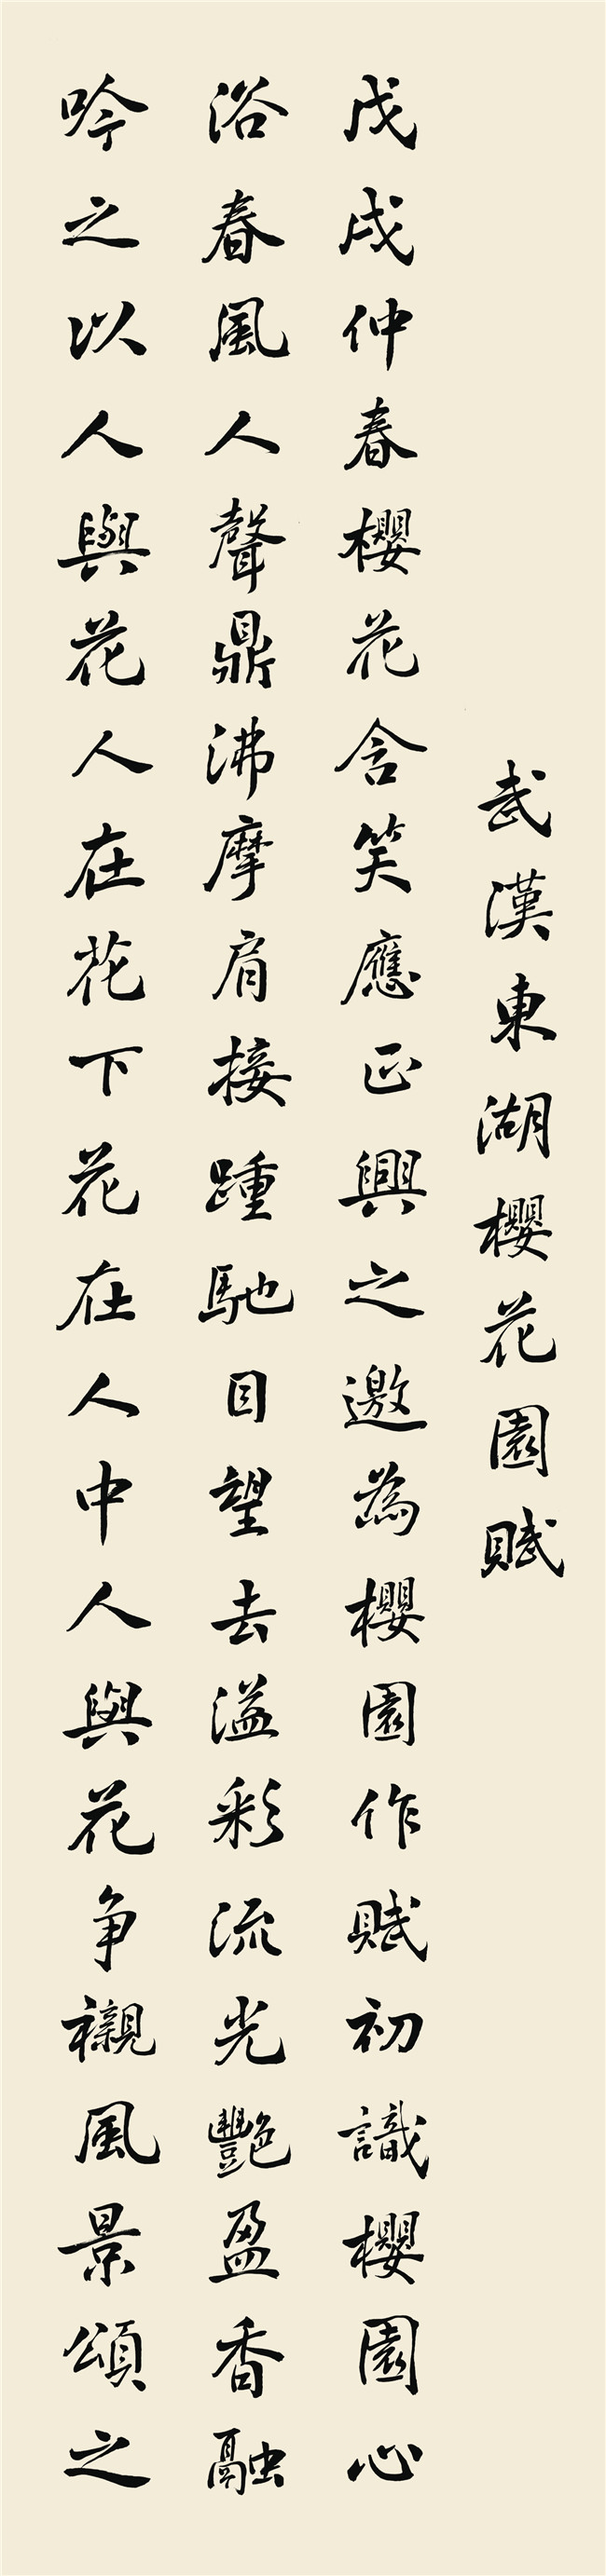 武漢東湖櫻花園賦
戊戌仲春櫻花含笑應正興之邀為櫻園作賦初識櫻園心
浴春風人聲鼎沸摩肩接踵馳目望去溢彩流光豔盈香融
吟之以人與花人在花下花在人中人與花争襯風景頌之